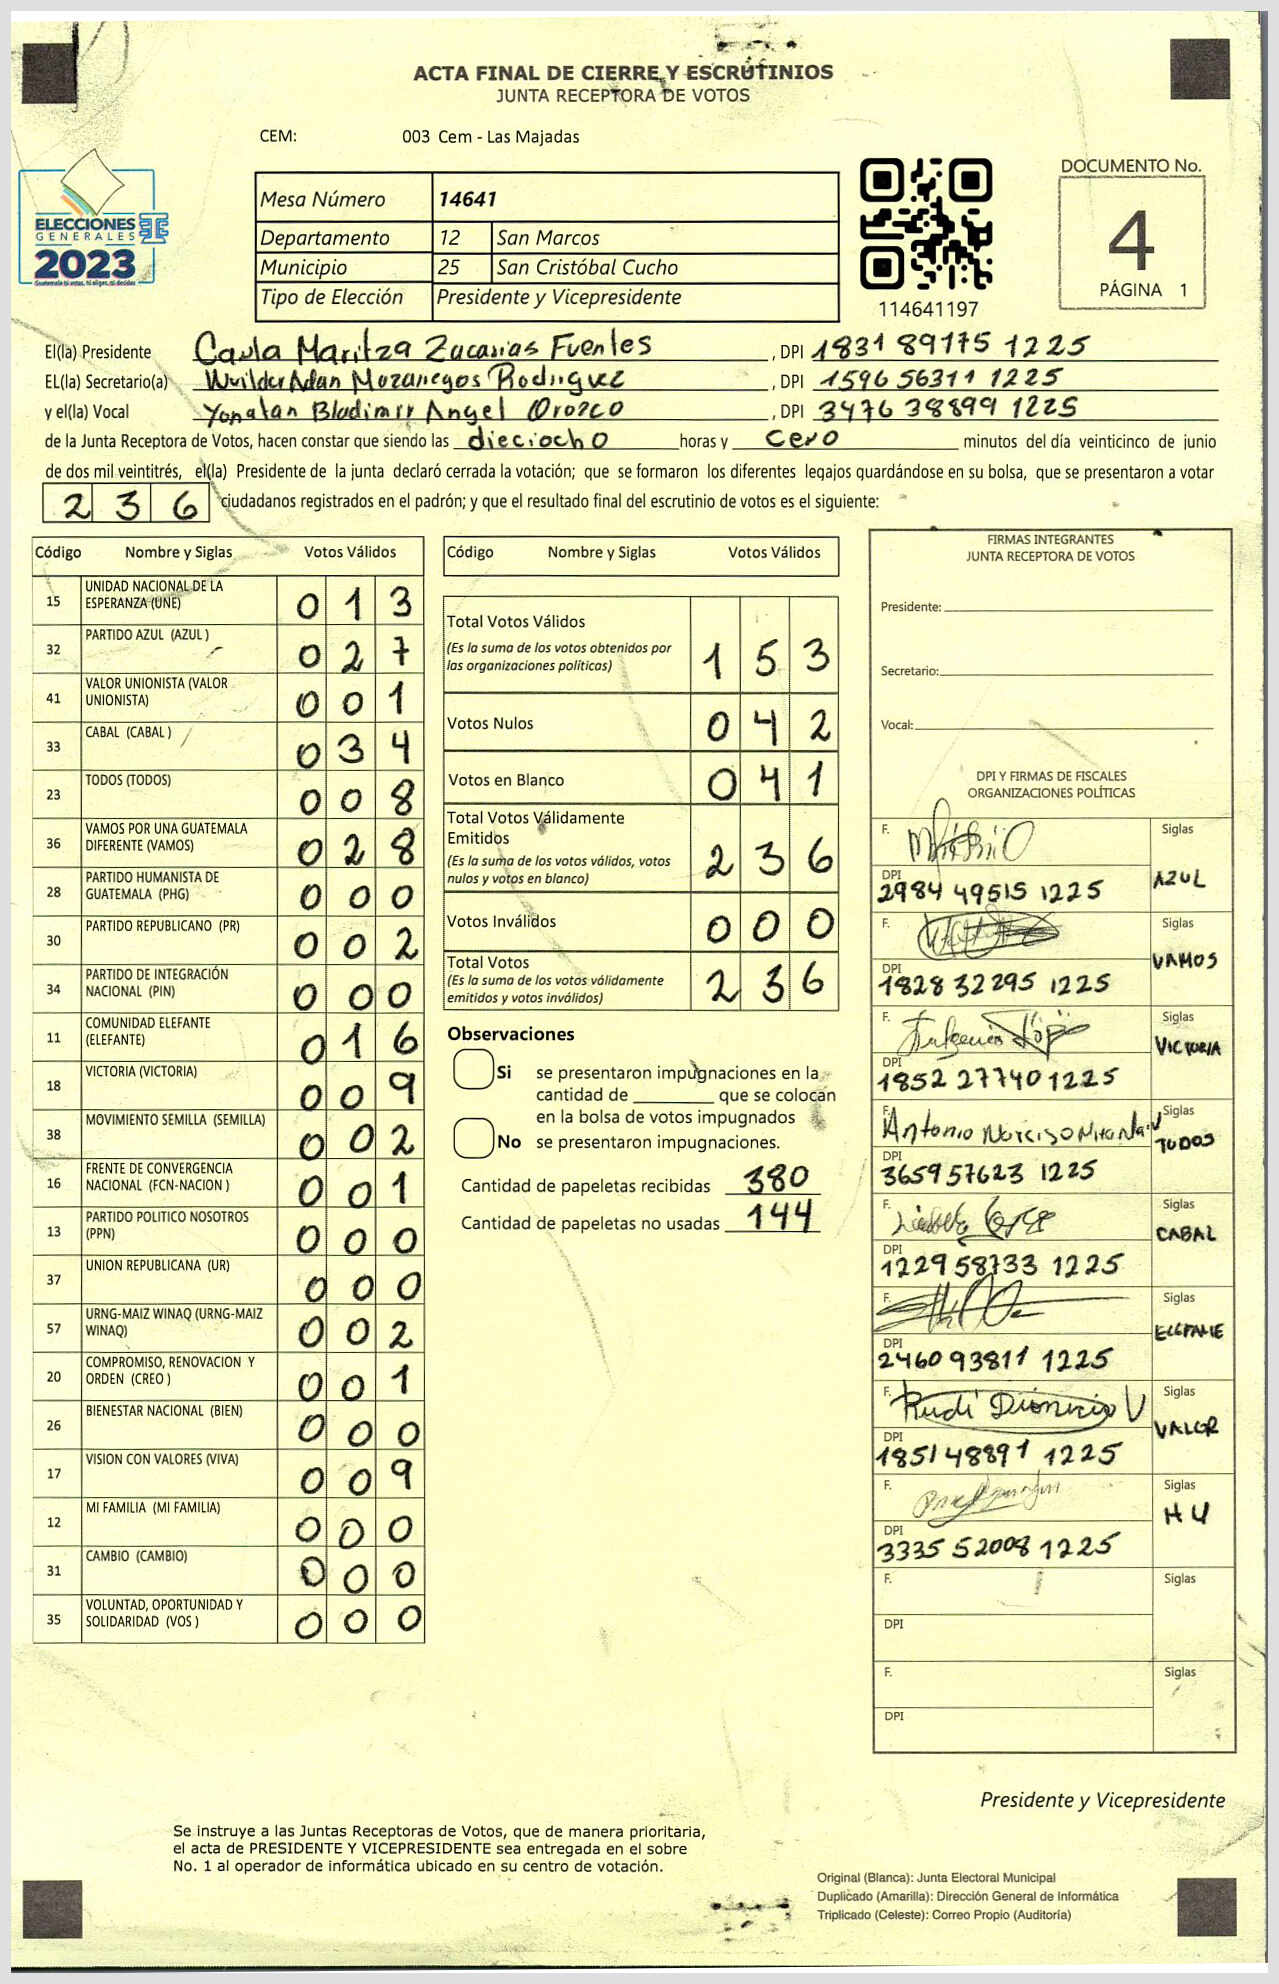 ACTA FINAL DE CIERRE Y ESCRUTINIOS
JUNTA RECEPTORA DE VOTOS
CEM: 003 Cem - Las Majadas
ELECCIONES
GENERALES
2023
Mesa Número 14641
Departamento 12 San Marcos
Municipio 25 San Cristóbal Cucho
Tipo de Elección Presidente y Vicepresidente
114641197
DOCUMENTO No.
4
PÁGINA 1
El(la) Presidente Carla Maritza Zacarias Fuentes, DPI 1831 89175 1225
EL(la) Secretario(a) Wuilder Adan Rodriguez, DPI 1596 56311 1225
y el(la) Vocal Yonatan Bladimir Angel Orozco, DPI 3476 38899 1225
de la Junta Receptora de Votos, hacen constar que siendo las dieciocho horas y cero minutos del día veinticinco de junio
de dos mil veintitrés, el(la) Presidente de la junta declaró cerrada la votación; que se formaron los diferentes legajos guardándose en su bolsa, que se presentaron a votar
236 ciudadanos registrados en el padrón; y que el resultado final del escrutinio de votos es el siguiente:
Código Nombre y Siglas Votos Válidos
15 UNIDAD NACIONAL DE LA ESPERANZA (UNE) 013
32 PARTIDO AZUL (AZUL ) 027
41 VALOR UNIONISTA (VALOR UNIONISTA) 001
33 CABAL (CABAL ) 034
23 TODOS (TODOS) 008
36 VAMOS POR UNA GUATEMALA DIFERENTE (VAMOS) 028
28 PARTIDO HUMANISTA DE GUATEMALA (PHG) 000
30 PARTIDO REPUBLICANO (PR) 002
34 PARTIDO DE INTEGRACIÓN NACIONAL (PIN) 000
11 COMUNIDAD ELEFANTE (ELEFANTE) 016
18 VICTORIA (VICTORIA) 009
38 MOVIMIENTO SEMILLA (SEMILLA) 002
16 FRENTE DE CONVERGENCIA NACIONAL (FCN-NACION ) 001
13 PARTIDO POLITICO NOSOTROS (PPN) 000
37 UNION REPUBLICANA (UR) 000
57 URNG-MAIZ WINAQ (URNG-MAIZ WINAQ) 002
20 COMPROMISO, RENOVACION Y ORDEN (CREO ) 001
26 BIENESTAR NACIONAL (BIEN) 000
17 VISION CON VALORES (VIVA) 009
12 MI FAMILIA (MI FAMILIA) 000
31 CAMBIO (CAMBIO) 000
35 VOLUNTAD, OPORTUNIDAD Y SOLIDARIDAD (VOS ) 000
Código Nombre y Siglas Votos Válidos
Total Votos Válidos 153
(Es la suma de los votos obtenidos por
las organizaciones políticas)
Votos Nulos 042
Votos en Blanco 041
Total Votos Válidamente
Emitidos 236
(Es la suma de los votos válidos, votos
nulos y votos en blanco)
Votos Inválidos 000
Total Votos 236
(Es la suma de los votos válidamente
emitidos y votos inválidos)
Observaciones
Si se presentaron impugnaciones en la
cantidad de ________ que se colocan
en la bolsa de votos impugnados
No se presentaron impugnaciones.
Cantidad de papeletas recibidas 380
Cantidad de papeletas no usadas 144
FIRMAS INTEGRANTES
JUNTA RECEPTORA DE VOTOS
Presidente:
Secretario:
Vocal:
DPI Y FIRMAS DE FISCALES
ORGANIZACIONES POLÍTICAS
F. Siglas
DPI AZUL
2984 49515 1225
F. Siglas
DPI VAMOS
1828 32295 1225
F. Siglas
DPI VICTORIA
1852 27740 1225
F. Antonio Narciso Siglas
DPI TODOS
3659 57623 1225
F. Siglas
DPI CABAL
1229 58733 1225
F. Siglas
DPI
2460 93811 1225
F. Rudi Dionicio V Siglas
DPI VALOR
1851 48891 1225
F. Siglas
DPI
3335 52008 1225
F. Siglas
DPI
F. Siglas
DPI
Presidente y Vicepresidente
Se instruye a las Juntas Receptoras de Votos, que de manera prioritaria,
el acta de PRESIDENTE Y VICEPRESIDENTE sea entregada en el sobre
No. 1 al operador de informática ubicado en su centro de votación.
Original (Blanca): Junta Electoral Municipal
Duplicado (Amarilla): Dirección General de Informática
Triplicado (Celeste): Correo Propio (Auditoría)